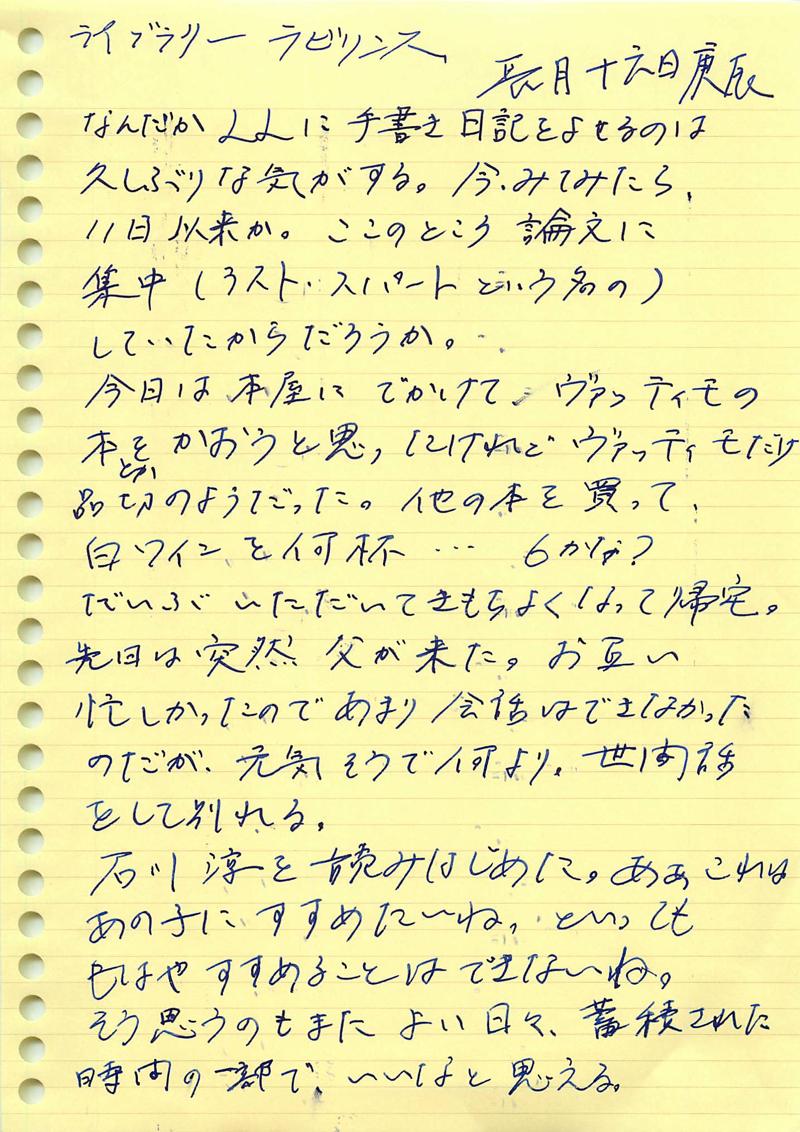 ライブラリー ラビリンス
長月十六日庚辰
なんだかLLに手書き日記をよせるのは
久しぶりな気がする。今、みてみたら、
11日以来か。ここのところ論文に
集中(ラスト・スパートという名の)
していたからだろうか。
今日は本屋にでかけて、ヴァッティモの
本とかをかおうと思ったけれどヴァッティモだけ
品切のようだった。他の本を買って、
白ワインを何杯… 6かな?
だいぶいただいてきもちよくなって帰宅。
先日は突然父が来た。お互い
忙しかったのであまり会話はできなかった
のだが、元気そうで何より。世間話
をして別れる。
石川淳を読みはじめた。ああこれは
あの子にすすめたいね、といっても
もはやすすめることはできないね。
そう思うのもまたよい日々、蓄積された
時間の一部で、いいなと思える。